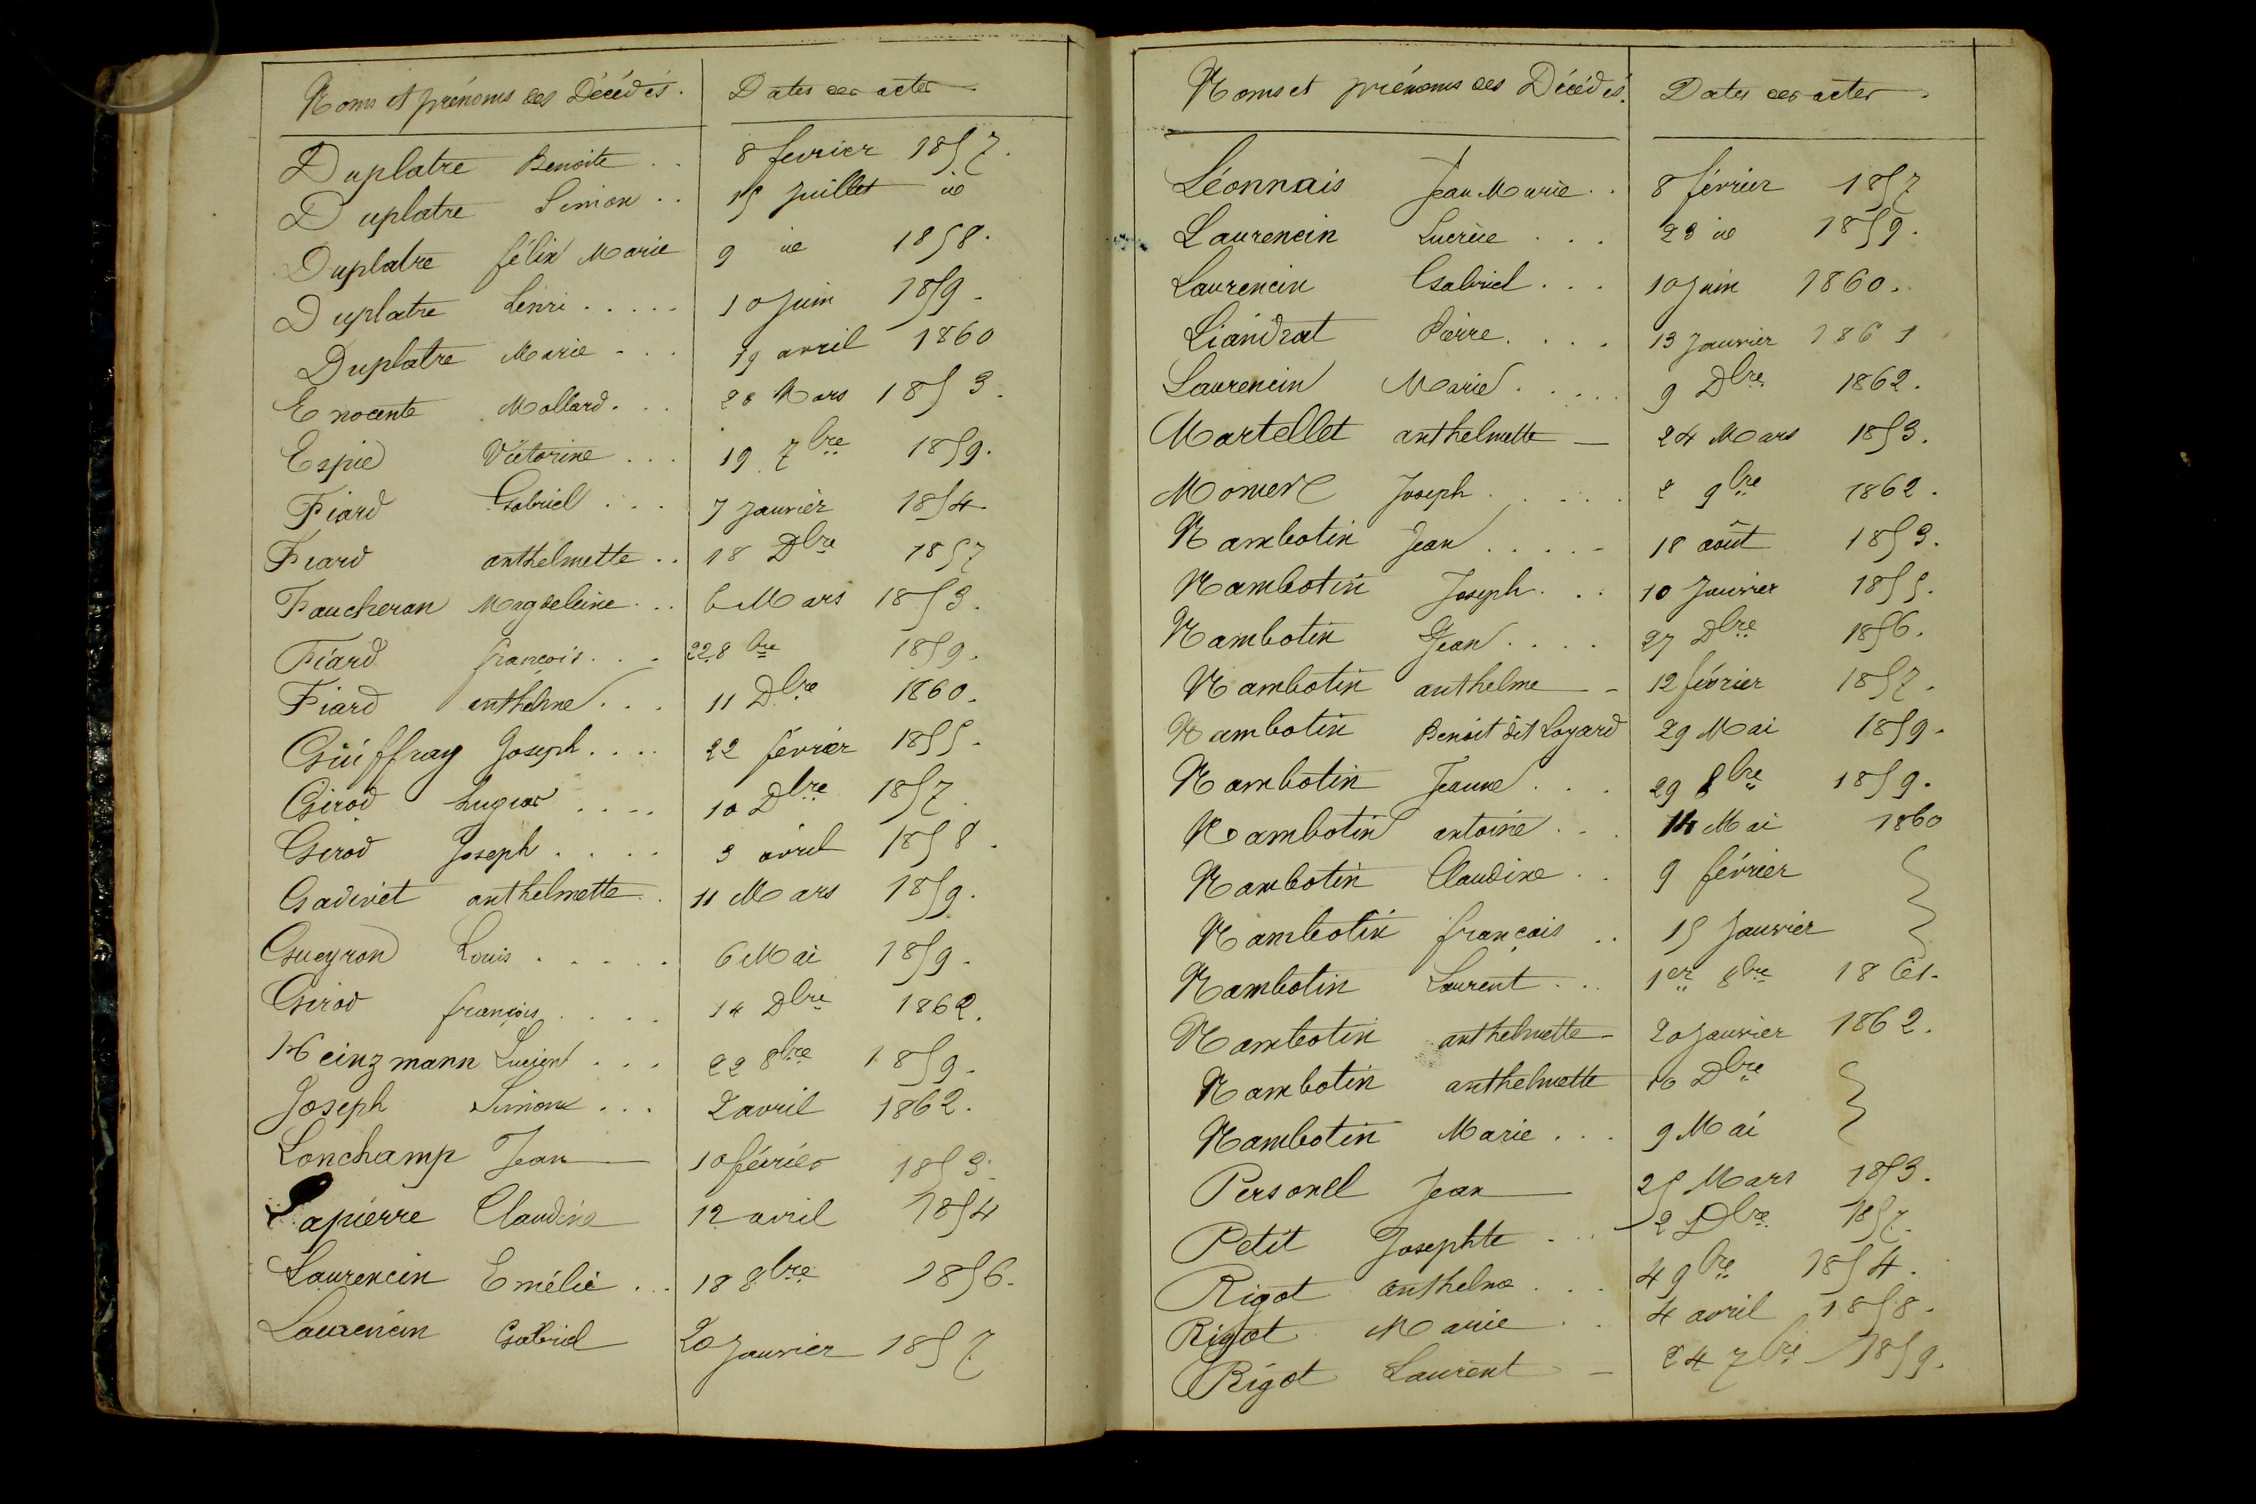 Noms et prénoms des Décédés. Dates des actes
Duplatre Benoite . . 8 fevrier 1857.
Duplatre Simon . . 15 Juillet id
Duplatre félix Marie 9 id 1858.
Duplatre henri . . . . . 10 Juin 1859.
Duplatre Marie . . . 19 avril 1860
Enocente Mollard . . . 28 Mars 1853.
Espie Victorine . . . 19 7bre 1859.
Fiard Gabriel . . . 7 Janvier 1854
Fiard anthelmette . . 18 Dbre 1857
Faucheran Magdeleine . . . 6 Mars 1853.
Fiard françois . . . 22 8bre 1859.
Fiard anthelme . . . 11 Dbre 1860.
Guiffray Joseph . . . . 22 février 1855.
Girod . . . . 10 Dbre 1857.
Girod Joseph . . . . 3 avril 1858.
Gadivet anthelmette . . 11 Mars 1859.
Gueyron Louis . . . . . 6 Mai 1859.
Girod françois . . . . 14 Dbre 1862.
Heinzmann Lucient . . . 22 8bre 1859.
Joseph Simone . . . 2 avril 1862.
Lonchamp Jean 10 février 1853.
Lapierre Claudine 12 avril 1854
Laurencin Emélie . . . 18 8bre 1856.
Laurencin Gabriel 20 Janvier 1857
Noms et prénoms des Décédés. Dates des actes
Léonnais Jean Marie . . 8 février 1857
Laurencin Lucrèce . . . 23 id 1859.
Laurencin Gabriel . . . 10 Juin 1860.
Liandrat Pierre . . . . 13 Janvier 1861
Laurencin Marie . . . . 9 Dbre 1862.
Martellet anthelmette — 24 Mars 1853.
Joseph . . . . . 2 9bre 1862.
Nambotin Jean . . . . . 18 août 1853.
Nambotin Joseph . . . 10 Janvier 1855.
Nambotin Jean . . . . 27 Dbre 1856.
Nambotin anthelme — 12 février 1857.
Nambotin Benoit dit Loyard 29 Mai 1859.
Nambotin Jeanne . . . 29 8bre 1859.
Nambotin antoine . . . 14 Mai 1860
Nambotin Claudine . . 9 février
Nambotin françois . . 15 Janvier
Nambotin Laurent . . . 1er 8bre 1861.
Nambotin anthelmette 20 Janvier 1862.
Nambotin anthelmette 10 Dbre
Nambotin Marie . . . 9 Mai
Personel Jean 25 Mars 1853.
Petit Josephte . . . 2 Dbre 1857.
Rigot anthelme . . . 4 9bre 1854.
Rigot Marie . . 4 avril 1858.
Rigot Laurent — 24 7bre 1859.